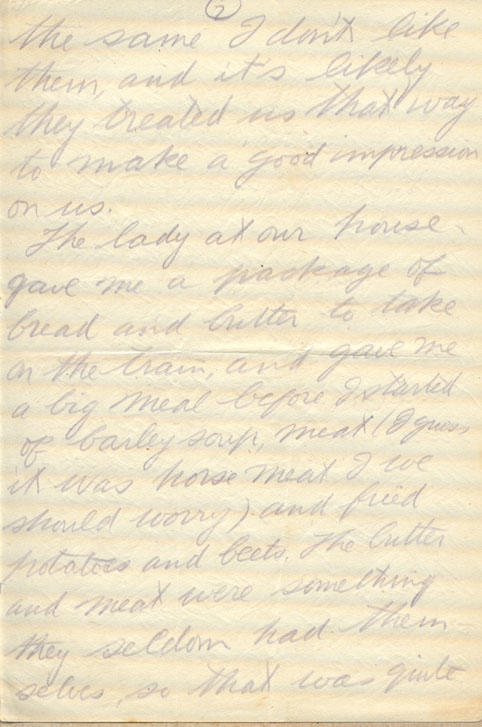 2
the same I don't like
them, and it's likely
they treated us that way
to make a good impression
on us.
The lady at our house
gave me a package of
bread and butter to take
on the train, and gave me
a big meal before I started
of barley soup, meat (I guess
it was horse meat I we
should worry) and fried
potatoes and beets. The butter
and meat were something
they seldom had them-
selves, so that was quite